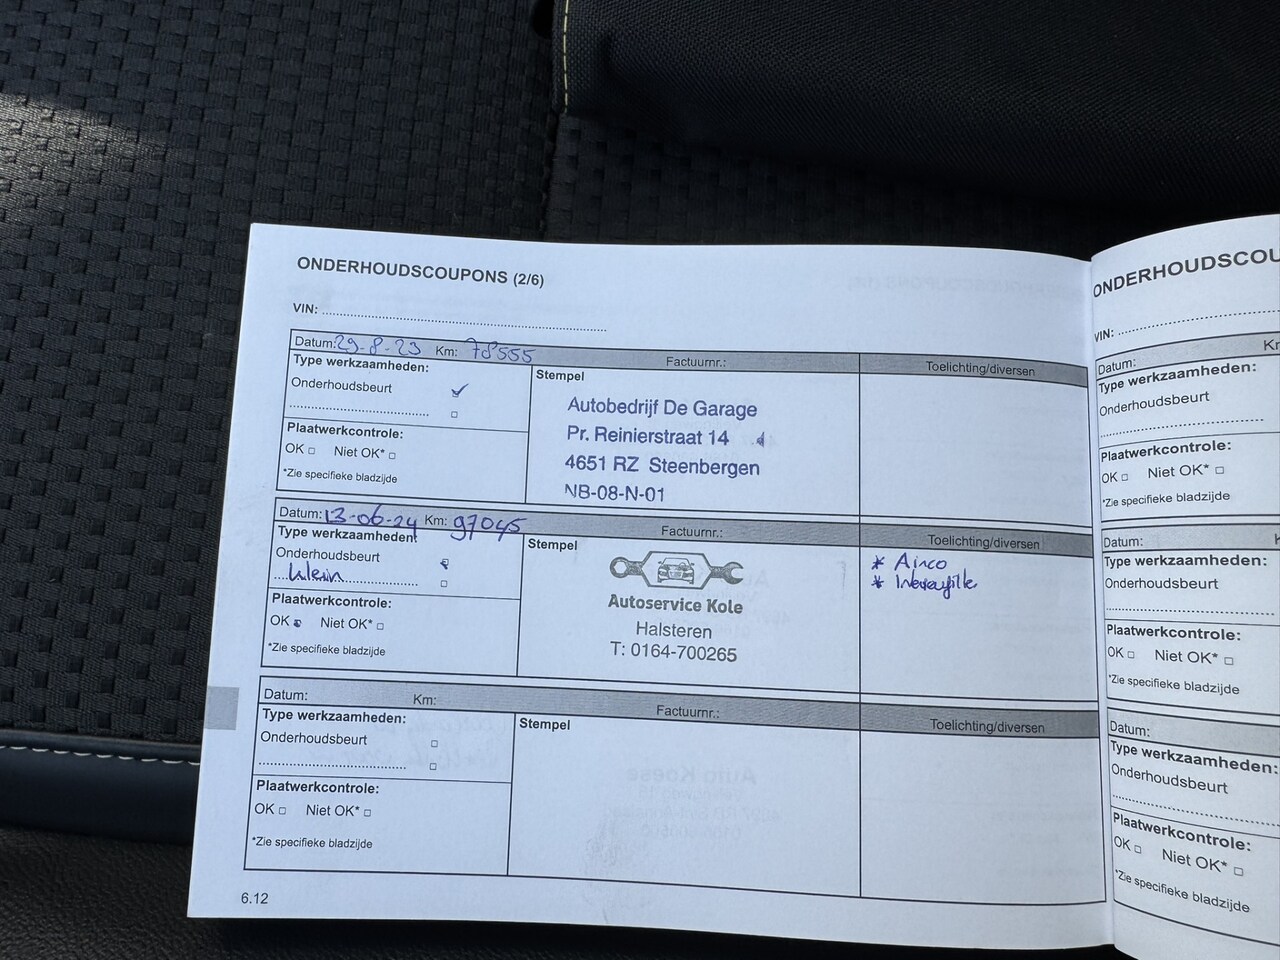 ONDERHOUDSCOUPONS (2/6)
VIN:
Datum: 29-8-23 Km: 78555 Factuurnr.: Toelichting/diversen
Type werkzaamheden:
Onderhoudsbeurt
Stempel
Autobedrijf De Garage
Pr. Reinierstraat 14
4651 RZ Steenbergen
NB-08-N-01
Plaatwerkcontrole:
OK Niet OK*
*Zie specifieke bladzijde
Datum: 13-06-24 Km: 97045 Factuurnr.: Toelichting/diversen
Type werkzaamheden:
Onderhoudsbeurt
Klein
Stempel
Autoservice Kole
Halsteren
T: 0164-700265
* Airco
Plaatwerkcontrole:
OK Niet OK*
*Zie specifieke bladzijde
Datum: Km: Factuurnr.: Toelichting/diversen
Type werkzaamheden:
Onderhoudsbeurt
Stempel
Plaatwerkcontrole:
OK Niet OK*
*Zie specifieke bladzijde
6.12
ONDERHOUDSCOU
VIN:
Datum:
Type werkzaamheden:
Onderhoudsbeurt
Plaatwerkcontrole:
OK Niet OK*
*Zie specifieke bladzijde
Datum:
Type werkzaamheden:
Onderhoudsbeurt
Plaatwerkcontrole:
OK Niet OK*
*Zie specifieke bladzijde
Datum:
Type werkzaamheden:
Onderhoudsbeurt
Plaatwerkcontrole:
OK Niet OK*
*Zie specifieke bladzijde